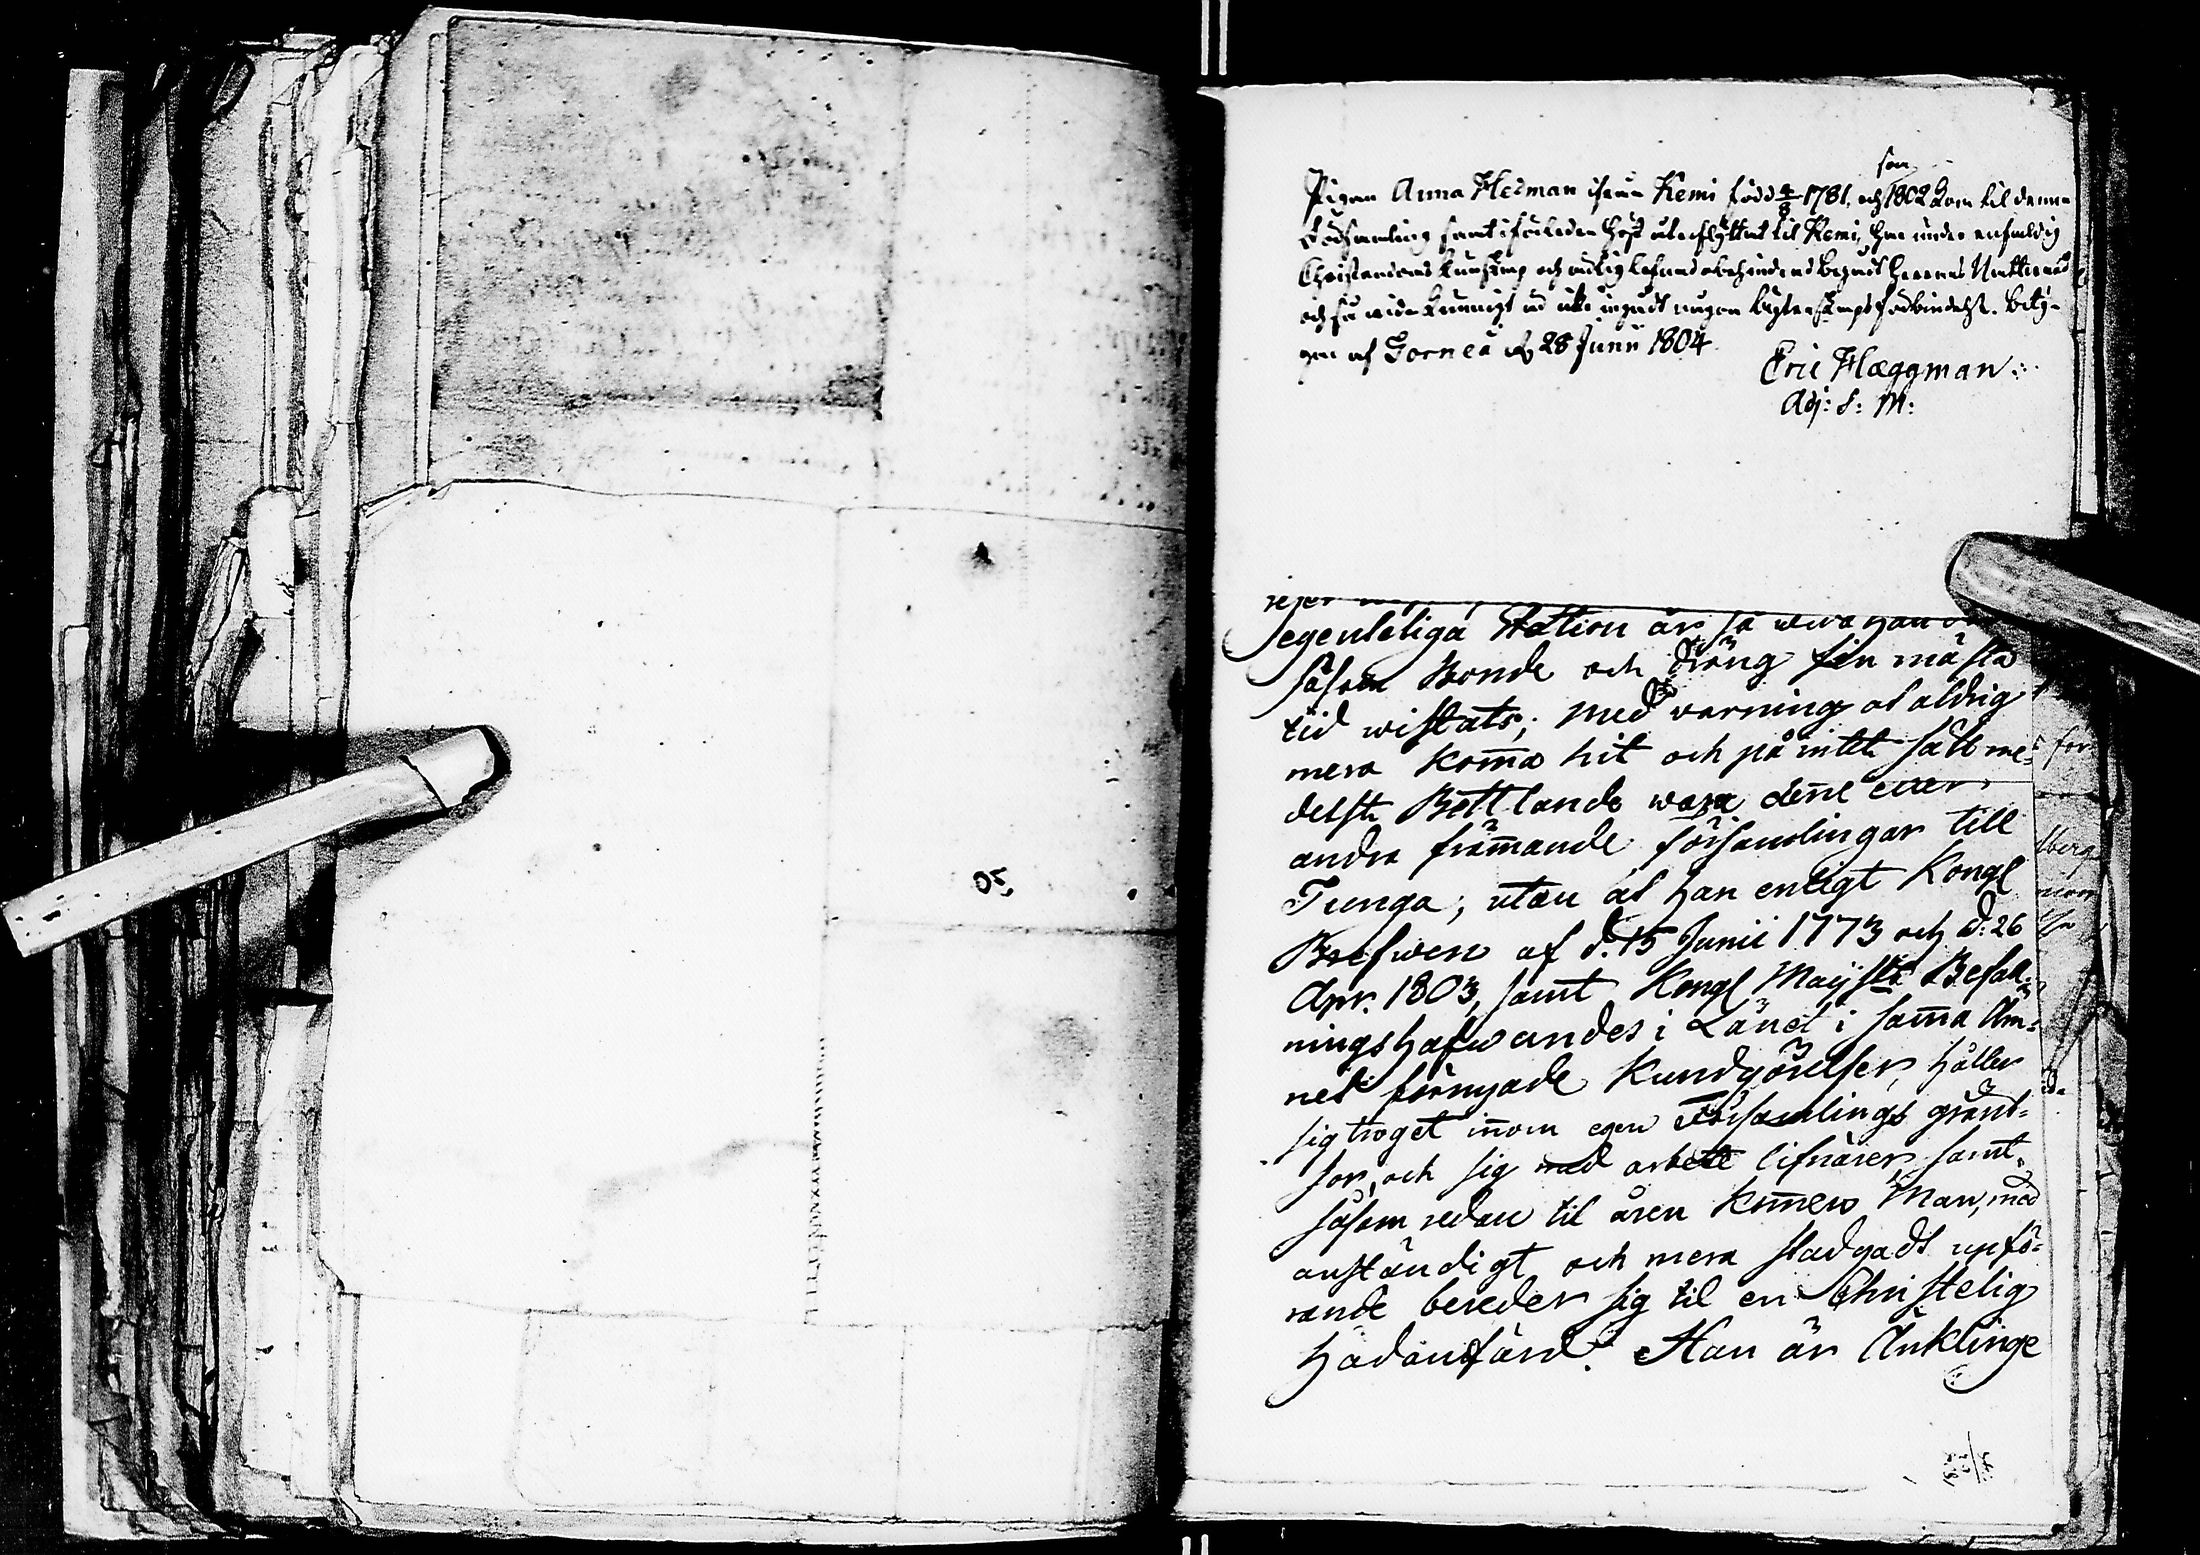 som
Pigan Anna Hedman ifrån Kemi född 4/8 1781, och 1802 kom til denne
Församling samt förleden höst återflyttat til Kemi, har under enfaldig
Christendoms kunskap och ärlig lefnad obehindrad begådt Herrans Nattvard
och så vida kunnigt är icke ingådt någon ägtenskaps förbindelse. bety-
gar af Torneå d. 28 Junii 1804
Eric Hæggman
Adj: S: M:
egenteliga Station är så wida han
såsom Bonde och Dräng sin mästa
tid wistats; med warning at aldrig
mera kom̄a hit och på intet sätt me-
delst Bettlande wara den̄e eller
andra främ̄ande församlingar till
Tunga, utan at han enligt Kongl
Brefwen af d. 15 Junii 1773 och d: 26
Apr. 1803, samt Kongl Maij:sts Befall-
ningshafwandes i Länet i sam̄a Äm-
net förnyade Kundgörelser, håller
sig troget in̄om egen Församlings gränt-
sor, och sig med arbete lifnärer, samt
såsom redan til åren kom̄en Man, med
anständigt och mera stadgadt upfö-
rande bereder sig til en Christelig
hädanfärd. Han är Änklinge
for
berg
50